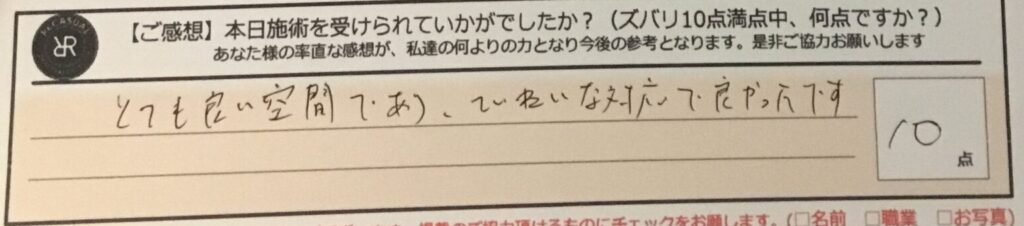 【ご感想】本日施術を受けられていかがでしたか？（ズバリ10点満点中、何点ですか？）
あなた様の率直な感想が、私達の何よりの力となり今後の参考となります。是非ご協力お願いします
とても良い空間であり、ていねいな対応で良かったです
10
点
のご協力頂けるものにチェックをお願します。(□名前 □職業 □お写真)